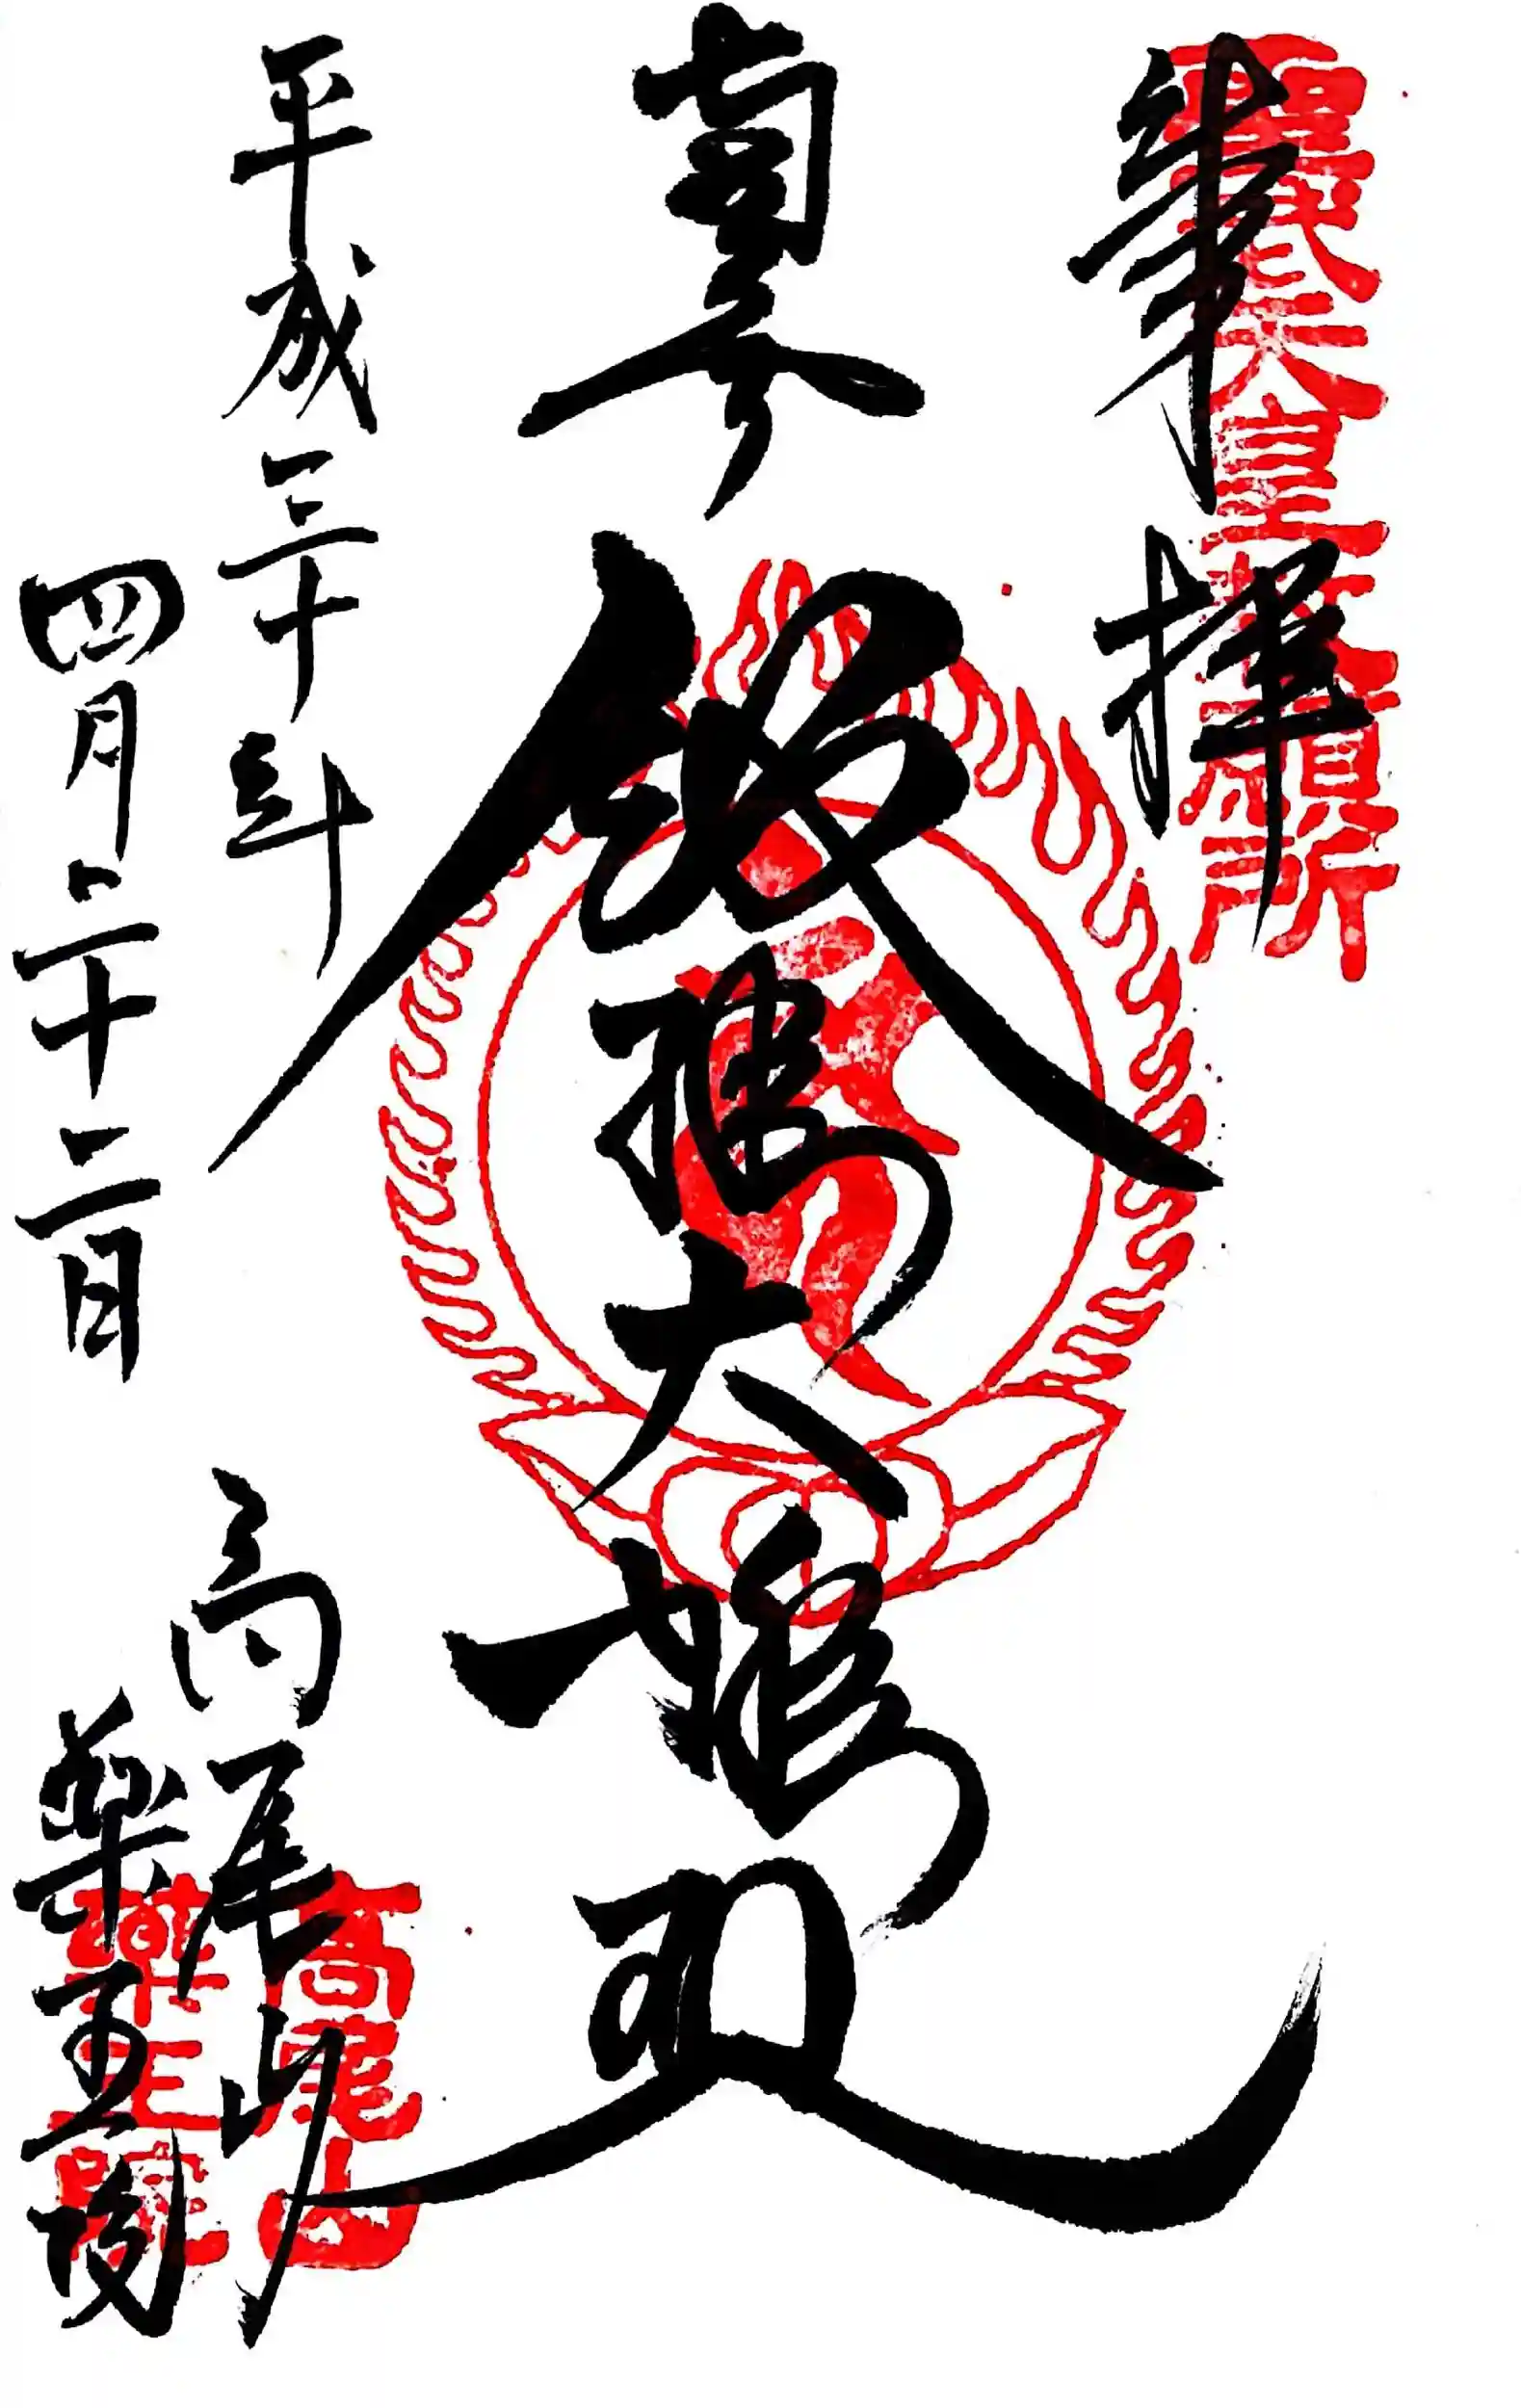 奉拝
聖武天皇勅願所
飯縄大権現
平成三十年
四月二十二日
高尾山
薬王院
高尾山
薬王院